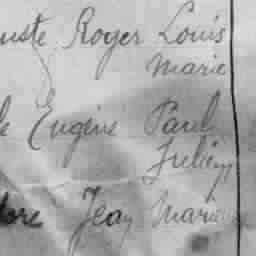 uste Roger Louis
Marie
le Eugène Paul
Julien
dore Jean Marie